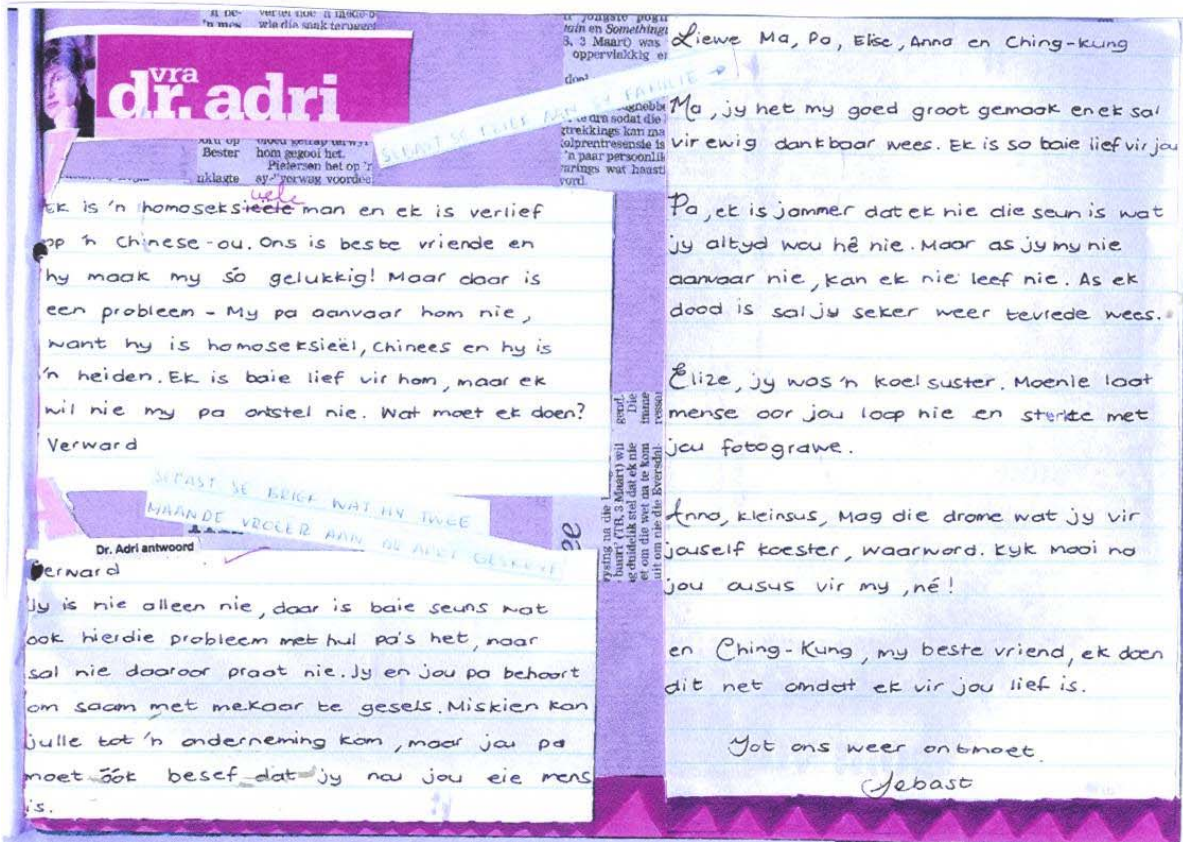 vra
dr. adri
SEBAST SE BRIEF AAN SY FAMILIE →
Ek is 'n homoseksuele man en ek is verlief
op 'n Chinese-ou. Ons is beste vriende en
hy maak my só gelukkig! Maar daar is
een probleem - My pa aanvaar hom nie,
want hy is homoseksieël, Chinees en hy is
'n heiden. Ek is baie lief vir hom, maar ek
wil nie my pa ontstel nie. Wat moet ek doen?
Verward
SEBAST SE BRIEF WAT HY TWEE
MAANDE VROEËR AAN DR ADRI GESKRYF
Dr. Adri antwoord
Verward
Jy is nie alleen nie, daar is baie seuns wat
ook hierdie probleem met hul pa's het, maar
sal nie daaroor praat nie. Jy en jou pa behoort
om saam met mekaar te gesels. Miskien kan
julle tot 'n onderneming kom, maar jou pa
moet óók besef dat jy nou jou eie mens
is.
Liewe Ma, Pa, Elise, Anna en Ching-Kung
Ma, jy het my goed groot gemaak en ek sal
vir ewig dankbaar wees. Ek is so baie lief vir jou
Pa, ek is jammer dat ek nie die seun is wat
jy altyd wou hê nie. Maar as jy my nie
aanvaar nie, kan ek nie leef nie. As ek
dood is sal jy seker weer tevrede wees.
Elize, jy was 'n koel suster. Moenie laat
mense oor jou loop nie en sterkte met
jou fotograwe.
Anna, kleinsus, Mag die drome wat jy vir
jouself koester, waarword. Kyk mooi na
jou ousus vir my, né!
en Ching-Kung, my beste vriend, ek doen
dit net omdat ek vir jou lief is.
Tot ons weer ontmoet.
Sebast